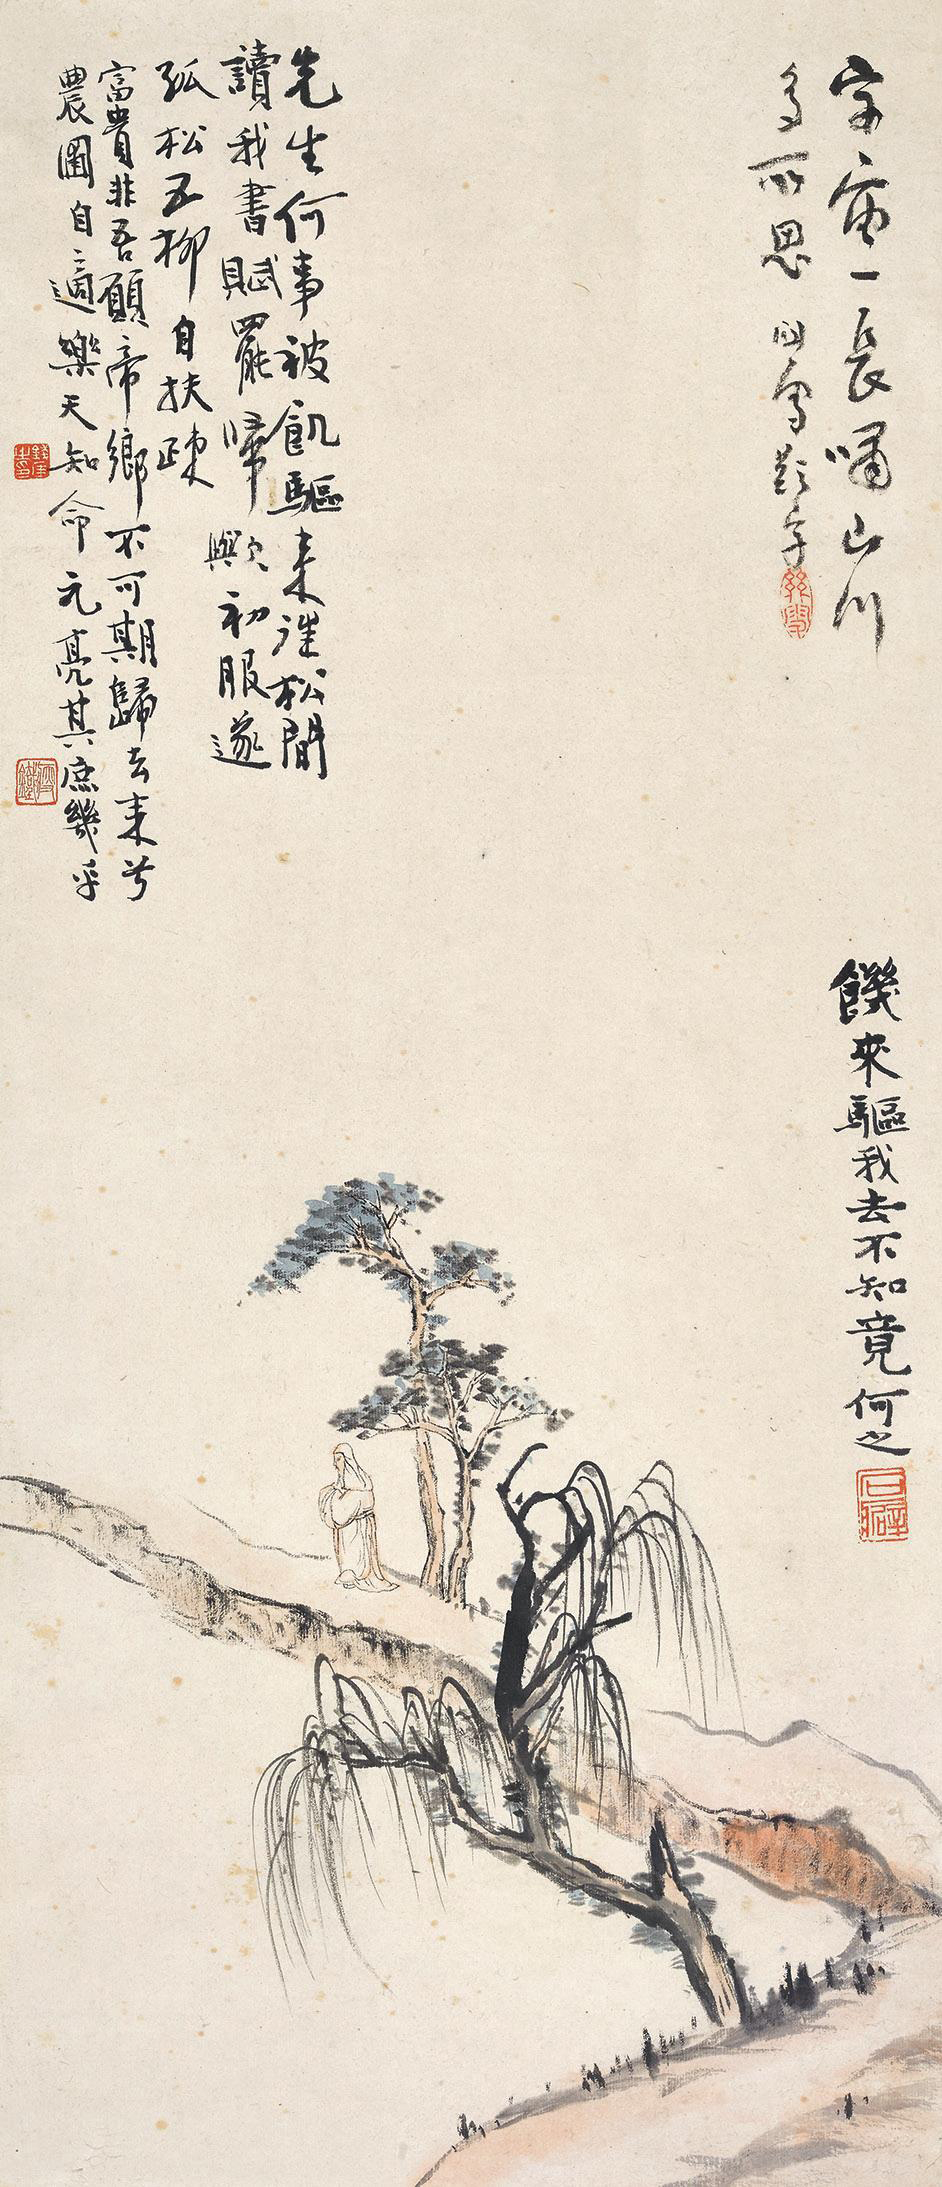 宇宙一長嘯山川
多所思
饑來驅我去不知竟何之
石壁
先生何事被飢驅未許松間
讀我書賦罷歸歟初服遂
孤松五柳自扶疎
富貴非吾願帝鄉不可期歸去来兮
農圃自適樂天知命元亮其庶幾乎